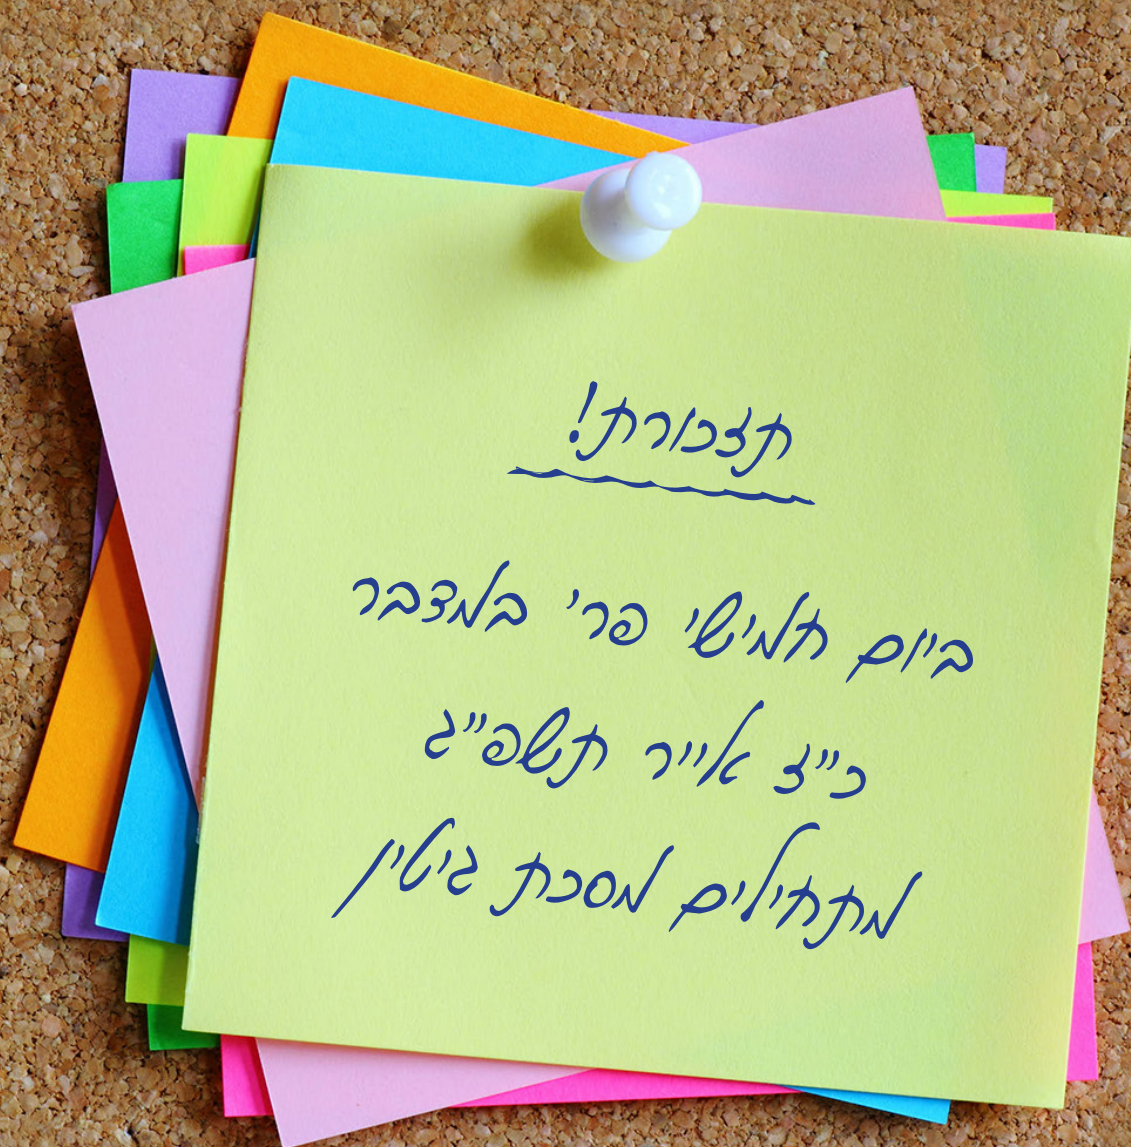 תזכורת!
ביום חמישי פר' במדבר
כ"ז אייר תשפ"ג
מתחילים מסכת גיטין